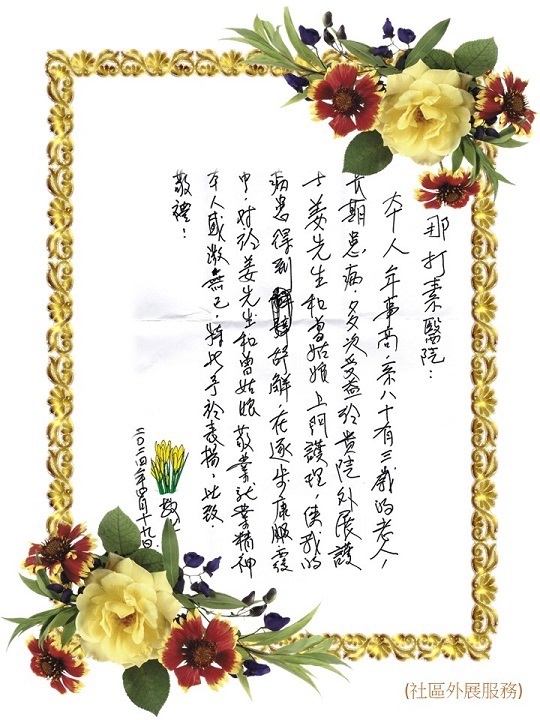 那打素醫院：
本人年事高，系八十有三歲的老人，
長期患病，多次受益於貴院外展護
士姜先生和曾姑娘上門護理，使我的
病患得到舒解，在逐步康服
中，对於姜先生和曾姑娘敬業業精神
本人感激無已，特此予於表揚，此致
敬禮！
敬上
二〇二四年四月十九日
(社區外展服務)